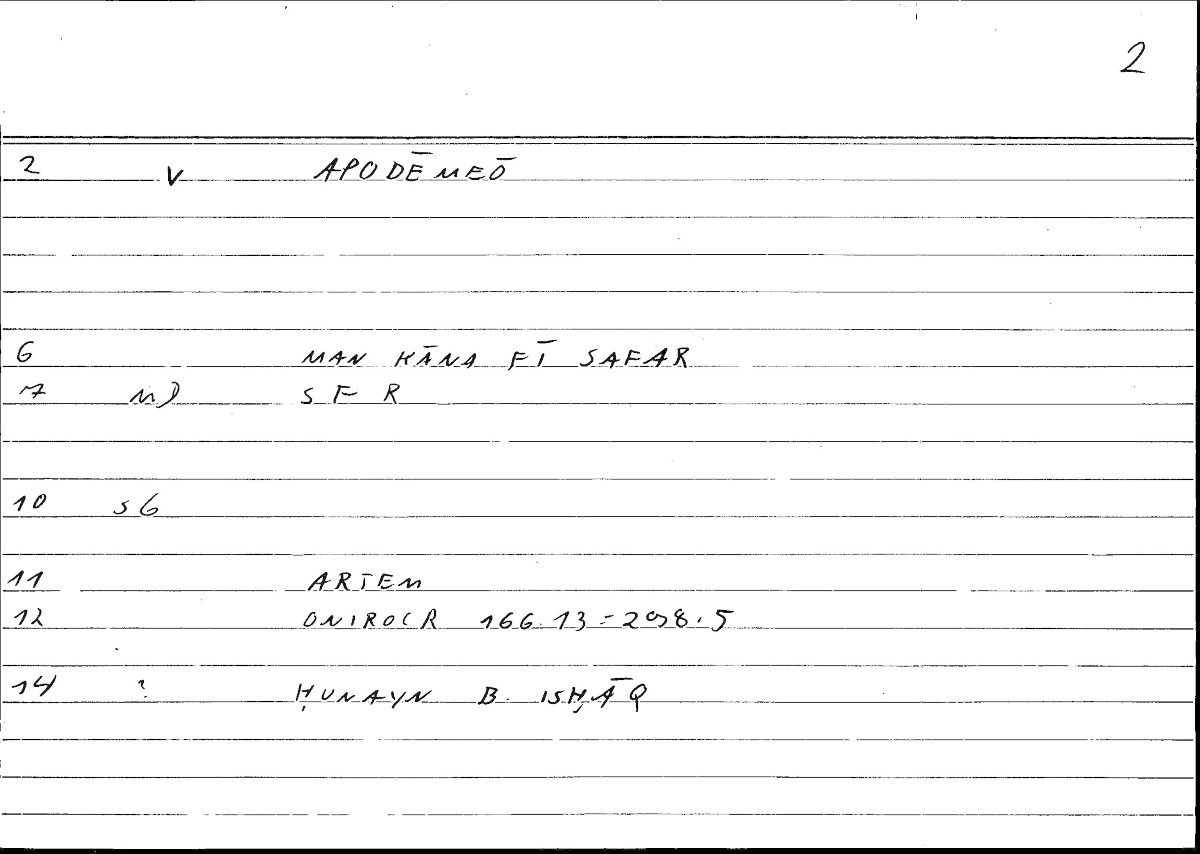 2
2 V APODĒMEŌ
6 MAN KĀNA FĪ SAFAR
7 MD S F R
10 SG
11 ARTEM
12 ONIROCR 166.13 = 298.5
14 ? ḤUNAYN B. ISḤĀQ